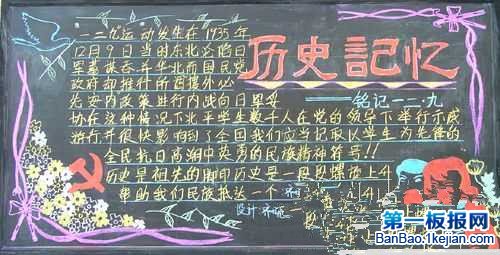 历史記忆
——铭记一二·九
一二九运动发生在1935年
12月9日当时东北沦陷日
军蓄谋吞并华北而国民党
政府却推行的攘外必
先安内政策进行内战向日妥
协在这种情况下北平学生数千人在党的领导下举行示威
游行并很快影响到了全国我们应当记取以学生为先锋的
全民抗日高潮中英勇的民族精神符号!!
历史是祖先的脚印历史是一段段螺旋上升
帮助我们民族抵达一个
设计:
第一板报网
BanBao.1kejian.com